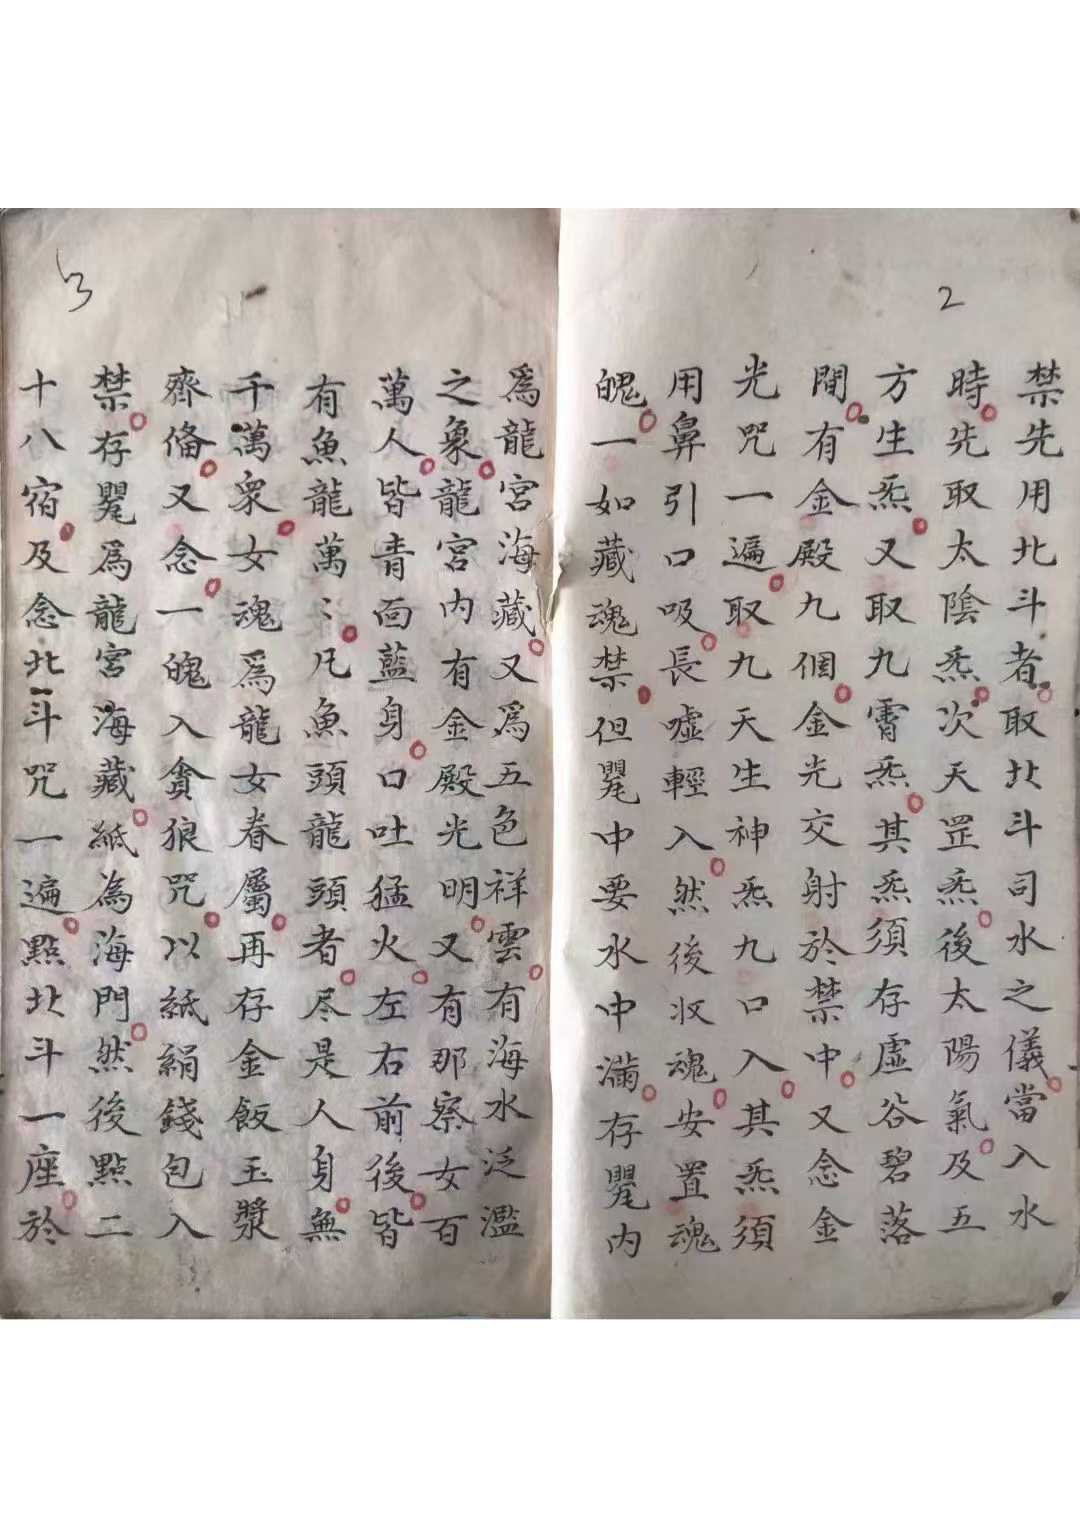 2
禁先用北斗者取北斗司水之儀當入水
時先取太陰炁次天罡炁後太陽氣及五
方生炁又取九霄炁其炁須存虛谷碧落
間有金殿九個金光交射於禁中又念金
光咒一遍取九天生神炁九口入其炁須
用鼻引口吸長噓輕入然後收魂安置魂
魄一如藏魂禁但甖中要水中滿存甖內
3
爲龍宮海藏又爲五色祥雲有海水泛濫
之象龍宮內有金殿光明又有那察女百
萬人皆青面藍身口吐猛火左右前後皆
有魚龍萬〻凡魚頭龍頭者尽是人身無
千萬衆女魂爲龍女眷屬再存金飯玉漿
齊俻又念一魄入貪狼咒以紙絹錢包入
禁存甖爲龍宮海藏紙為海門然後點二
十八宿及念北斗咒一遍點北斗一座於